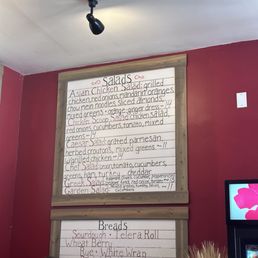 Salads
Asian Chicken Salad: grilled
chicken, red onions, mandarin oranges,
chow mein noodles, sliced almonds,
mixed greens & orange-ginger dress
Chicken Salad: chicken salad,
red onions, cucumbers, tomato, mixed
greens
Caesar Salad: grated parmesan,
herbed croutons, mixed greens
w/grilled chicken
Chef Salad: onion, tomato, cucumbers,
greens, ham, turkey, cheddar
Greek Salad
Garden Salad
cucumbers
Breads
Sourdough • Telera Roll
Wheat Berry
Rye • White Wrap